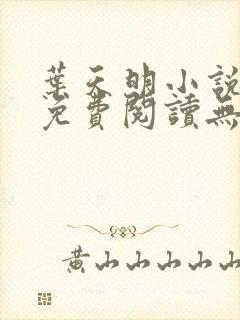 葉天明小說
免費閱讀無
黃山山山山